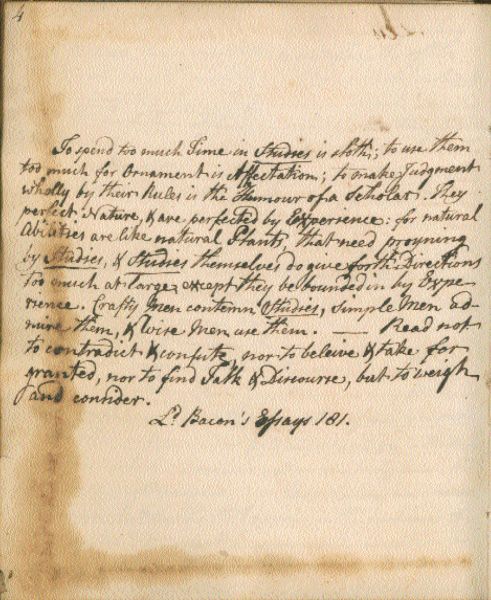 4
To spend too much Time in Studies is sloth; to use them
too much for Ornament is Affectation; to make Judgment
wholly by their Rules is the Humour of a Scholar. They
perfect Nature, & are perfected by Experience: for natural
Abilities are like natural Plants, that need proyning
by Studies, & Studies themselves do give forth Directions
too much at Large, except they be bounded in by Expe
rience. Crafty Men contemn Studies, simple Men ad-
mire them, & wise Men use them. — Read not
to contradict & confute, nor to beleive & take for
granted, nor to find Talk & Discourse, but to weigh
and consider.
Ld Bacon's Essays 181.